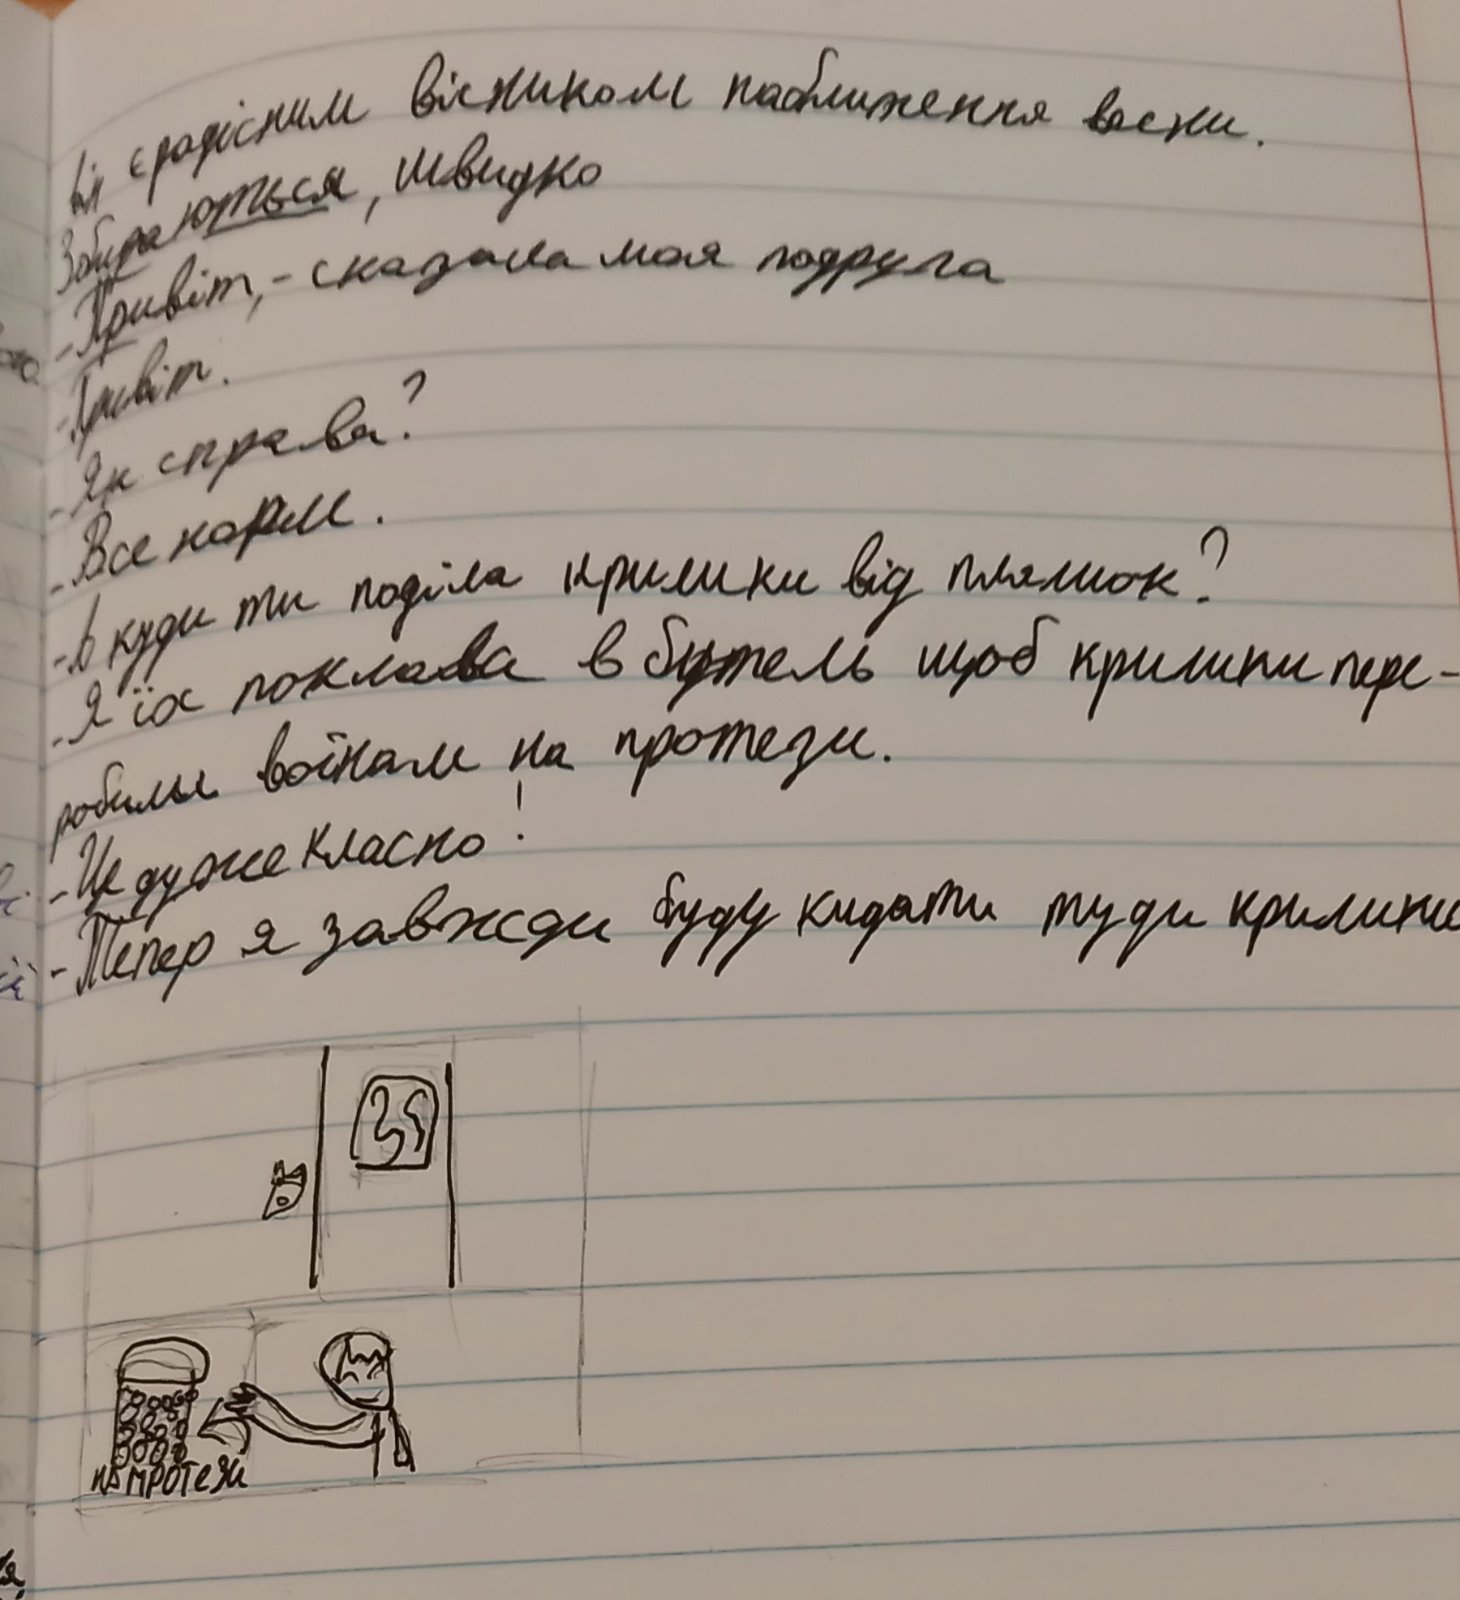 Він є радісним вісником наближення весни.
Збираються, швидко
- Привіт, - сказала моя подруга
- Привіт.
- Як справа?
- Все норм.
- А куди ти поділа кришки від пляшок?
- Я їх поклава в бутель щоб кришки пере-
робили воїнам на протези.
- Це дуже класно!
- Тепер я завжди буду кидати туди кришки
на протези